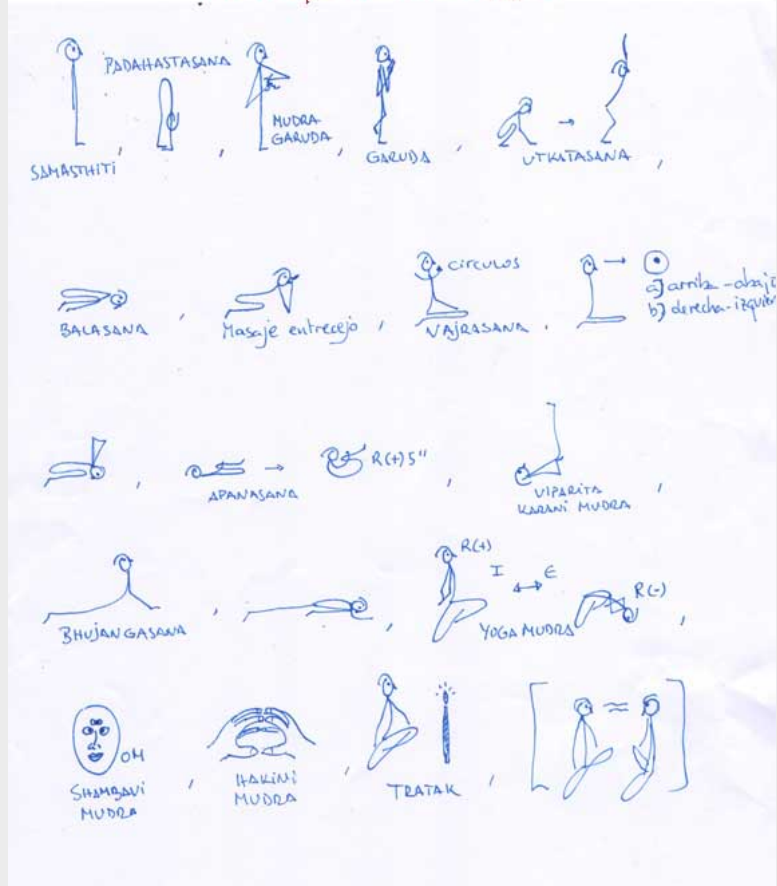 PADAHASTASANA
SAMASTHITI
MUDRA
GARUDA
GARUDA
UTKATASANA
BALASANA
Masaje entrecejo
círculos
VAJRASANA
a) arriba - abajo
b) derecha - izquier
APANASANA
R(+) 5"
VIPARITA
KARANI MUDRA
BHUJANGASANA
R(+)
I
E
YOGA MUDRA
R(-)
SHAMBAVI
MUDRA
OM
HAKINI
MUDRA
TRATAK